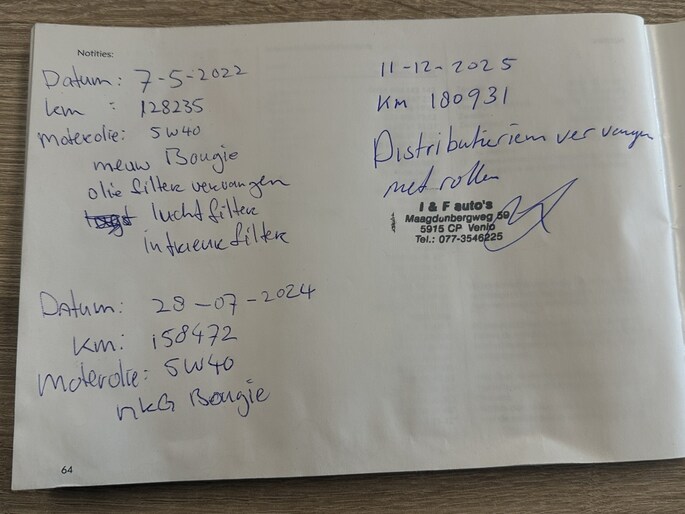 Notities:
Datum: 7-5-2022
km : 128235
Moterolie: 5W40
nieuw Bougie
olie filter vervangen
lucht filter
intrieur filter
Datum: 28-07-2024
Km: 158472
Moterolie: 5W40
NKG Bougie
64
11-12-2025
KM 180931
Distributieriem vervangen
met rollen
I & F auto's
Maagdenbergweg 59
5915 CP Venlo
Tel.: 077-3546225